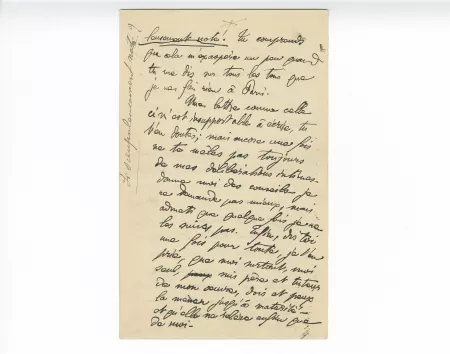 noté! Tu comprends
que cela m'exaspère un peu quand
tu me dis sur tous les tons que
je n'ai fait rien à Paris.
Une lettre comme celle
ci m'est insupportable à écrire, tu
t'en doutes; mais encore une fois
ne te mêles pas toujours
de mes délibérations intimes
donne moi des conseils je
ne demande pas mieux, mais
admets que quelque fois je ne
les suive pas. Enfin, dis toi
une fois pour toute, je t'en
prie, que moi surtout, moi
seul, mis père et tuteur
de mon oeuvre, dois et peux
la mener jusqu'à maturité —
et qu'elle ne relève enfin que
de moi —